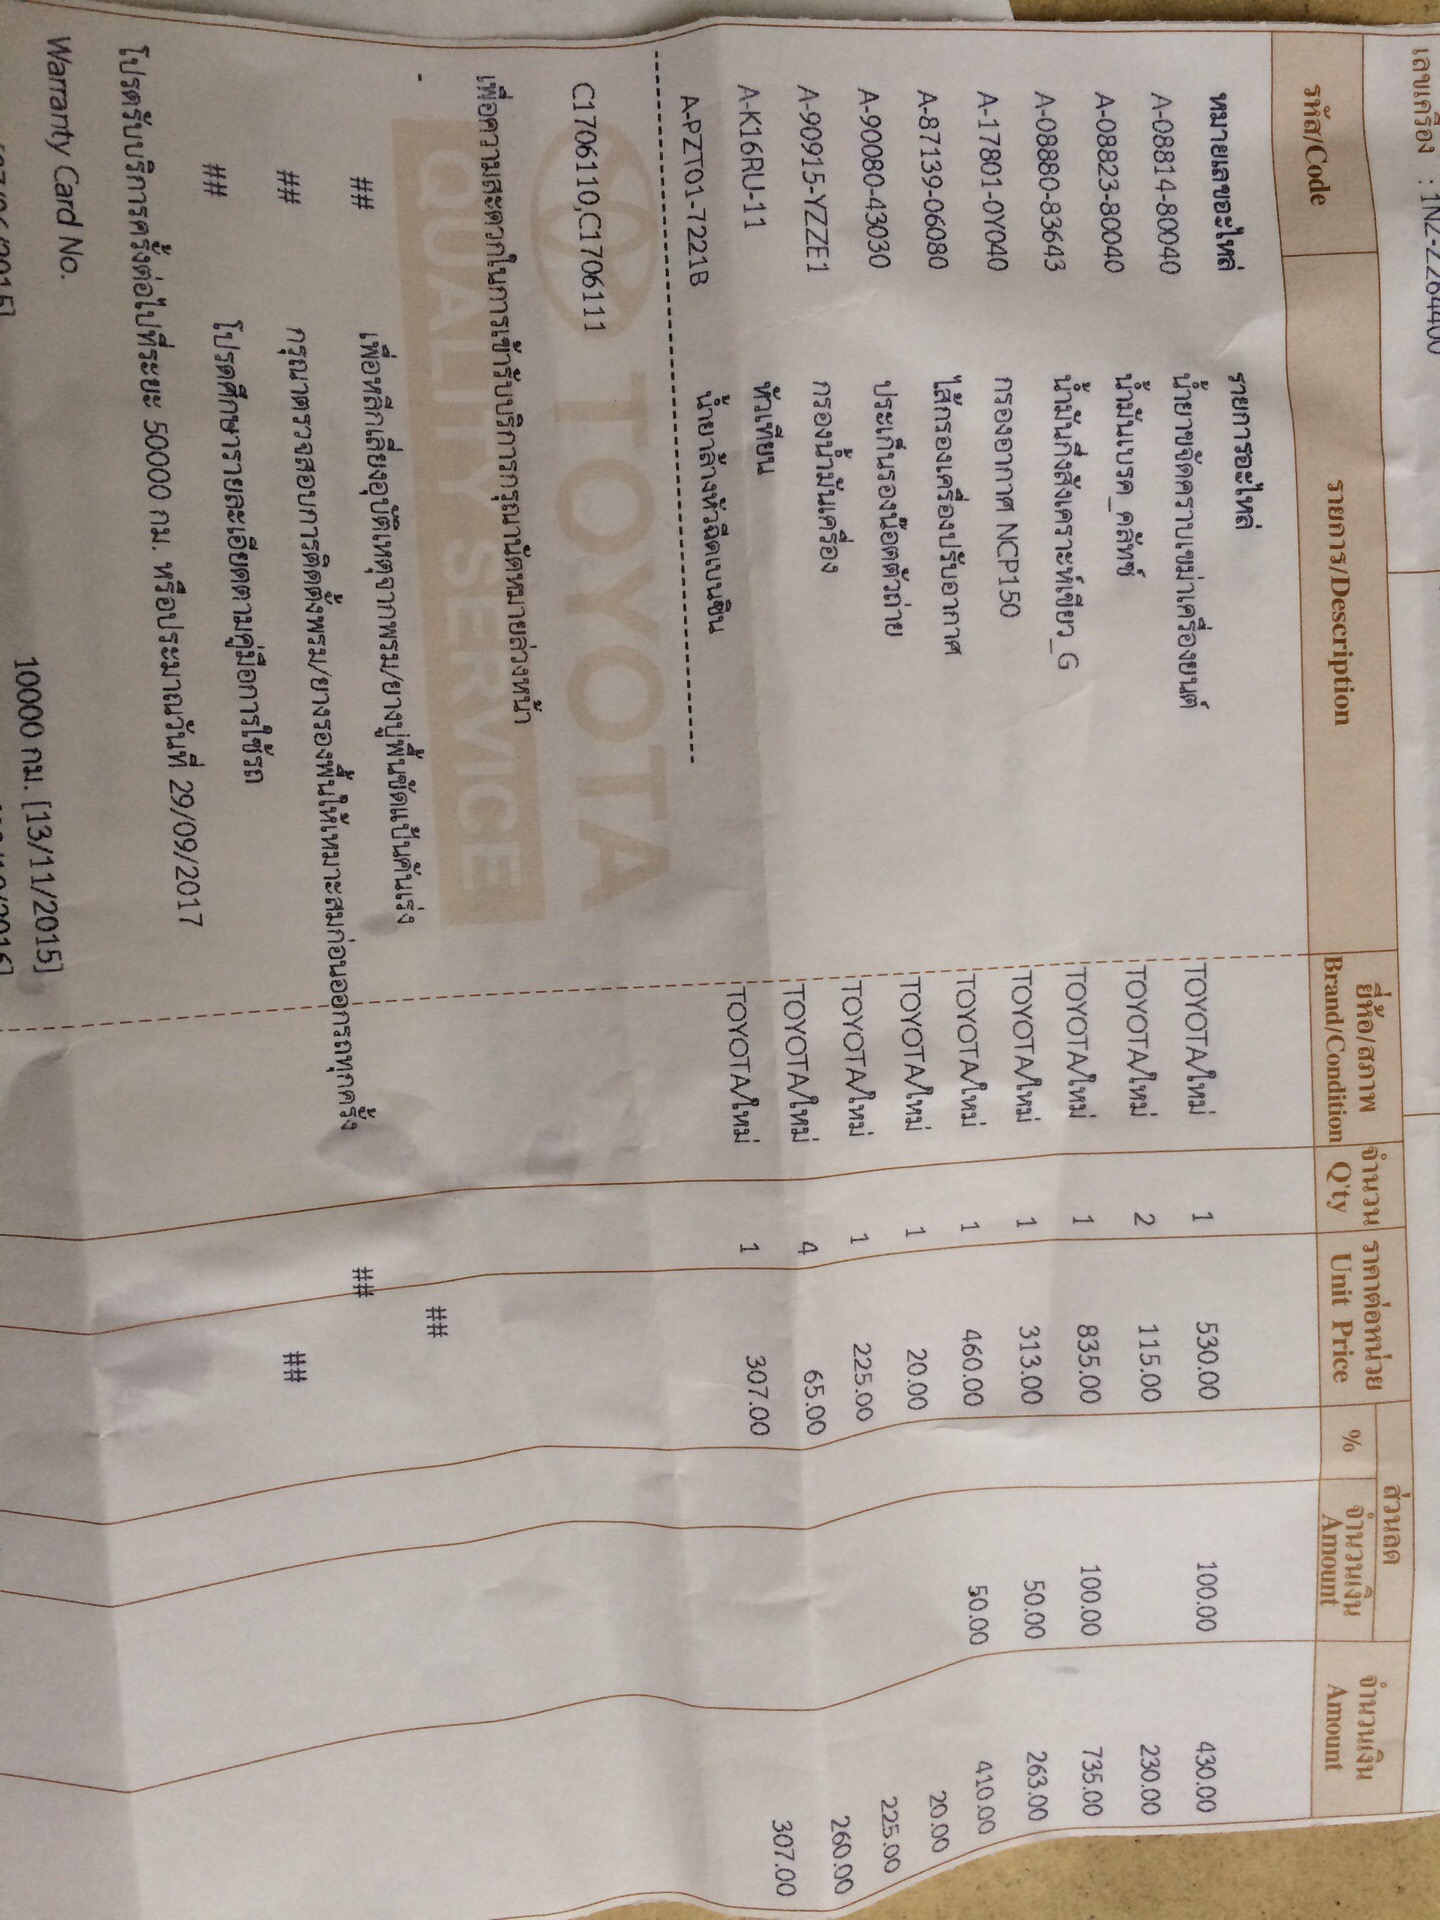 เลขเครื่อง : 1NZ-Z264400
รหัส/Code รายการ/Description ยี่ห้อ/สภาพ Brand/Condition จำนวน Q'ty ราคาต่อหน่วย Unit Price ส่วนลด % จำนวนเงิน Amount จำนวนเงิน Amount
หมายเลขอะไหล่ รายการอะไหล่
A-08814-80040 น้ำยาขจัดคราบเขม่าเครื่องยนต์ TOYOTA/ใหม่ 1 530.00 100.00 430.00
A-08823-80040 น้ำมันเบรค_คลัทช์ TOYOTA/ใหม่ 2 115.00 230.00
A-08880-83643 น้ำมันกึ่งสังเคราะห์เขียว_G TOYOTA/ใหม่ 1 835.00 100.00 735.00
A-17801-0Y040 กรองอากาศ NCP150 TOYOTA/ใหม่ 1 313.00 50.00 263.00
A-87139-06080 ไส้กรองเครื่องปรับอากาศ TOYOTA/ใหม่ 1 460.00 50.00 410.00
A-90080-43030 ประเก็นรองน๊อตตัวถ่าย TOYOTA/ใหม่ 1 20.00 20.00
A-90915-YZZE1 กรองน้ำมันเครื่อง TOYOTA/ใหม่ 1 225.00 225.00
A-K16RU-11 หัวเทียน TOYOTA/ใหม่ 4 65.00 260.00
A-PZT01-7221B น้ำยาล้างหัวฉีดเบนซิน TOYOTA/ใหม่ 1 307.00 307.00
C1706110,C1706111
TOYOTA
QUALITY SERVICE
เพื่อความสะดวกในการเข้ารับบริการกรุณานัดหมายล่วงหน้า
## เพื่อหลีกเลี่ยงอุบัติเหตุจากพรม/ยางปูพื้นขัดแป้นคันเร่ง ##
## กรุณาตรวจสอบการติดตั้งพรม/ยางรองพื้นให้เหมาะสมก่อนออกรถทุกครั้ง ##
## โปรดศึกษารายละเอียดตามคู่มือการใช้รถ ##
โปรดรับบริการครั้งต่อไปที่ระยะ 50000 กม. หรือประมาณวันที่ 29/09/2017
Warranty Card No.
10000 กม. [13/11/2015]